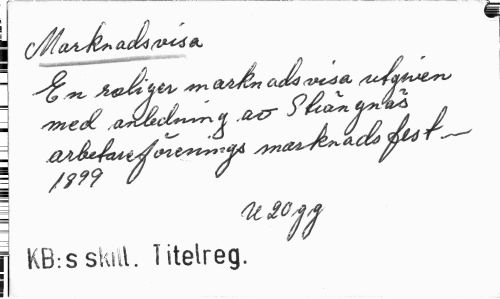 Marknadsvisa
En roliger marknadsvisa utgiven
med anledning av Strängnäs
arbetareförenings marknadsfest
1899
U 20 gg
KB:s skill. Titelreg.